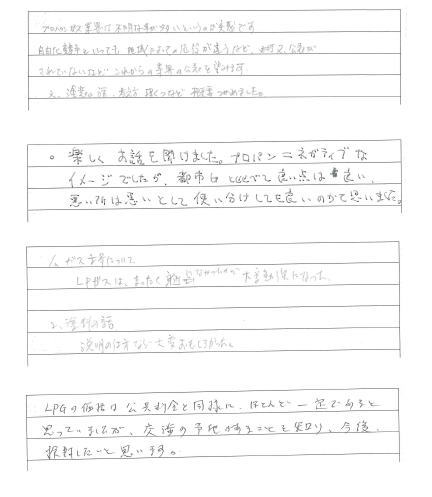 プロパンガス業界は不明な事が多いというのが実感です
自由化競争といっても、地域によっての
されていないなど これからの業界の公表を望みます。
・ 楽しく お話を聞けました。プロパン＝ネガティブな
イメージでしたが、都市ガスと比べて良い点は良い、
悪い所は悪いとして使い分けしても良いのかと思いました。
1. ガス全般について
LPガスは、まったく勉強しなかったので大変勉強になった。
2. 塗料の話
説明のし方なども大変おもしろかった。
LPGの価格は公共料金と同様に、ほとんど一定であると
思っていましたが、交渉の予地があることを知り、今後、
検討したいと思います。